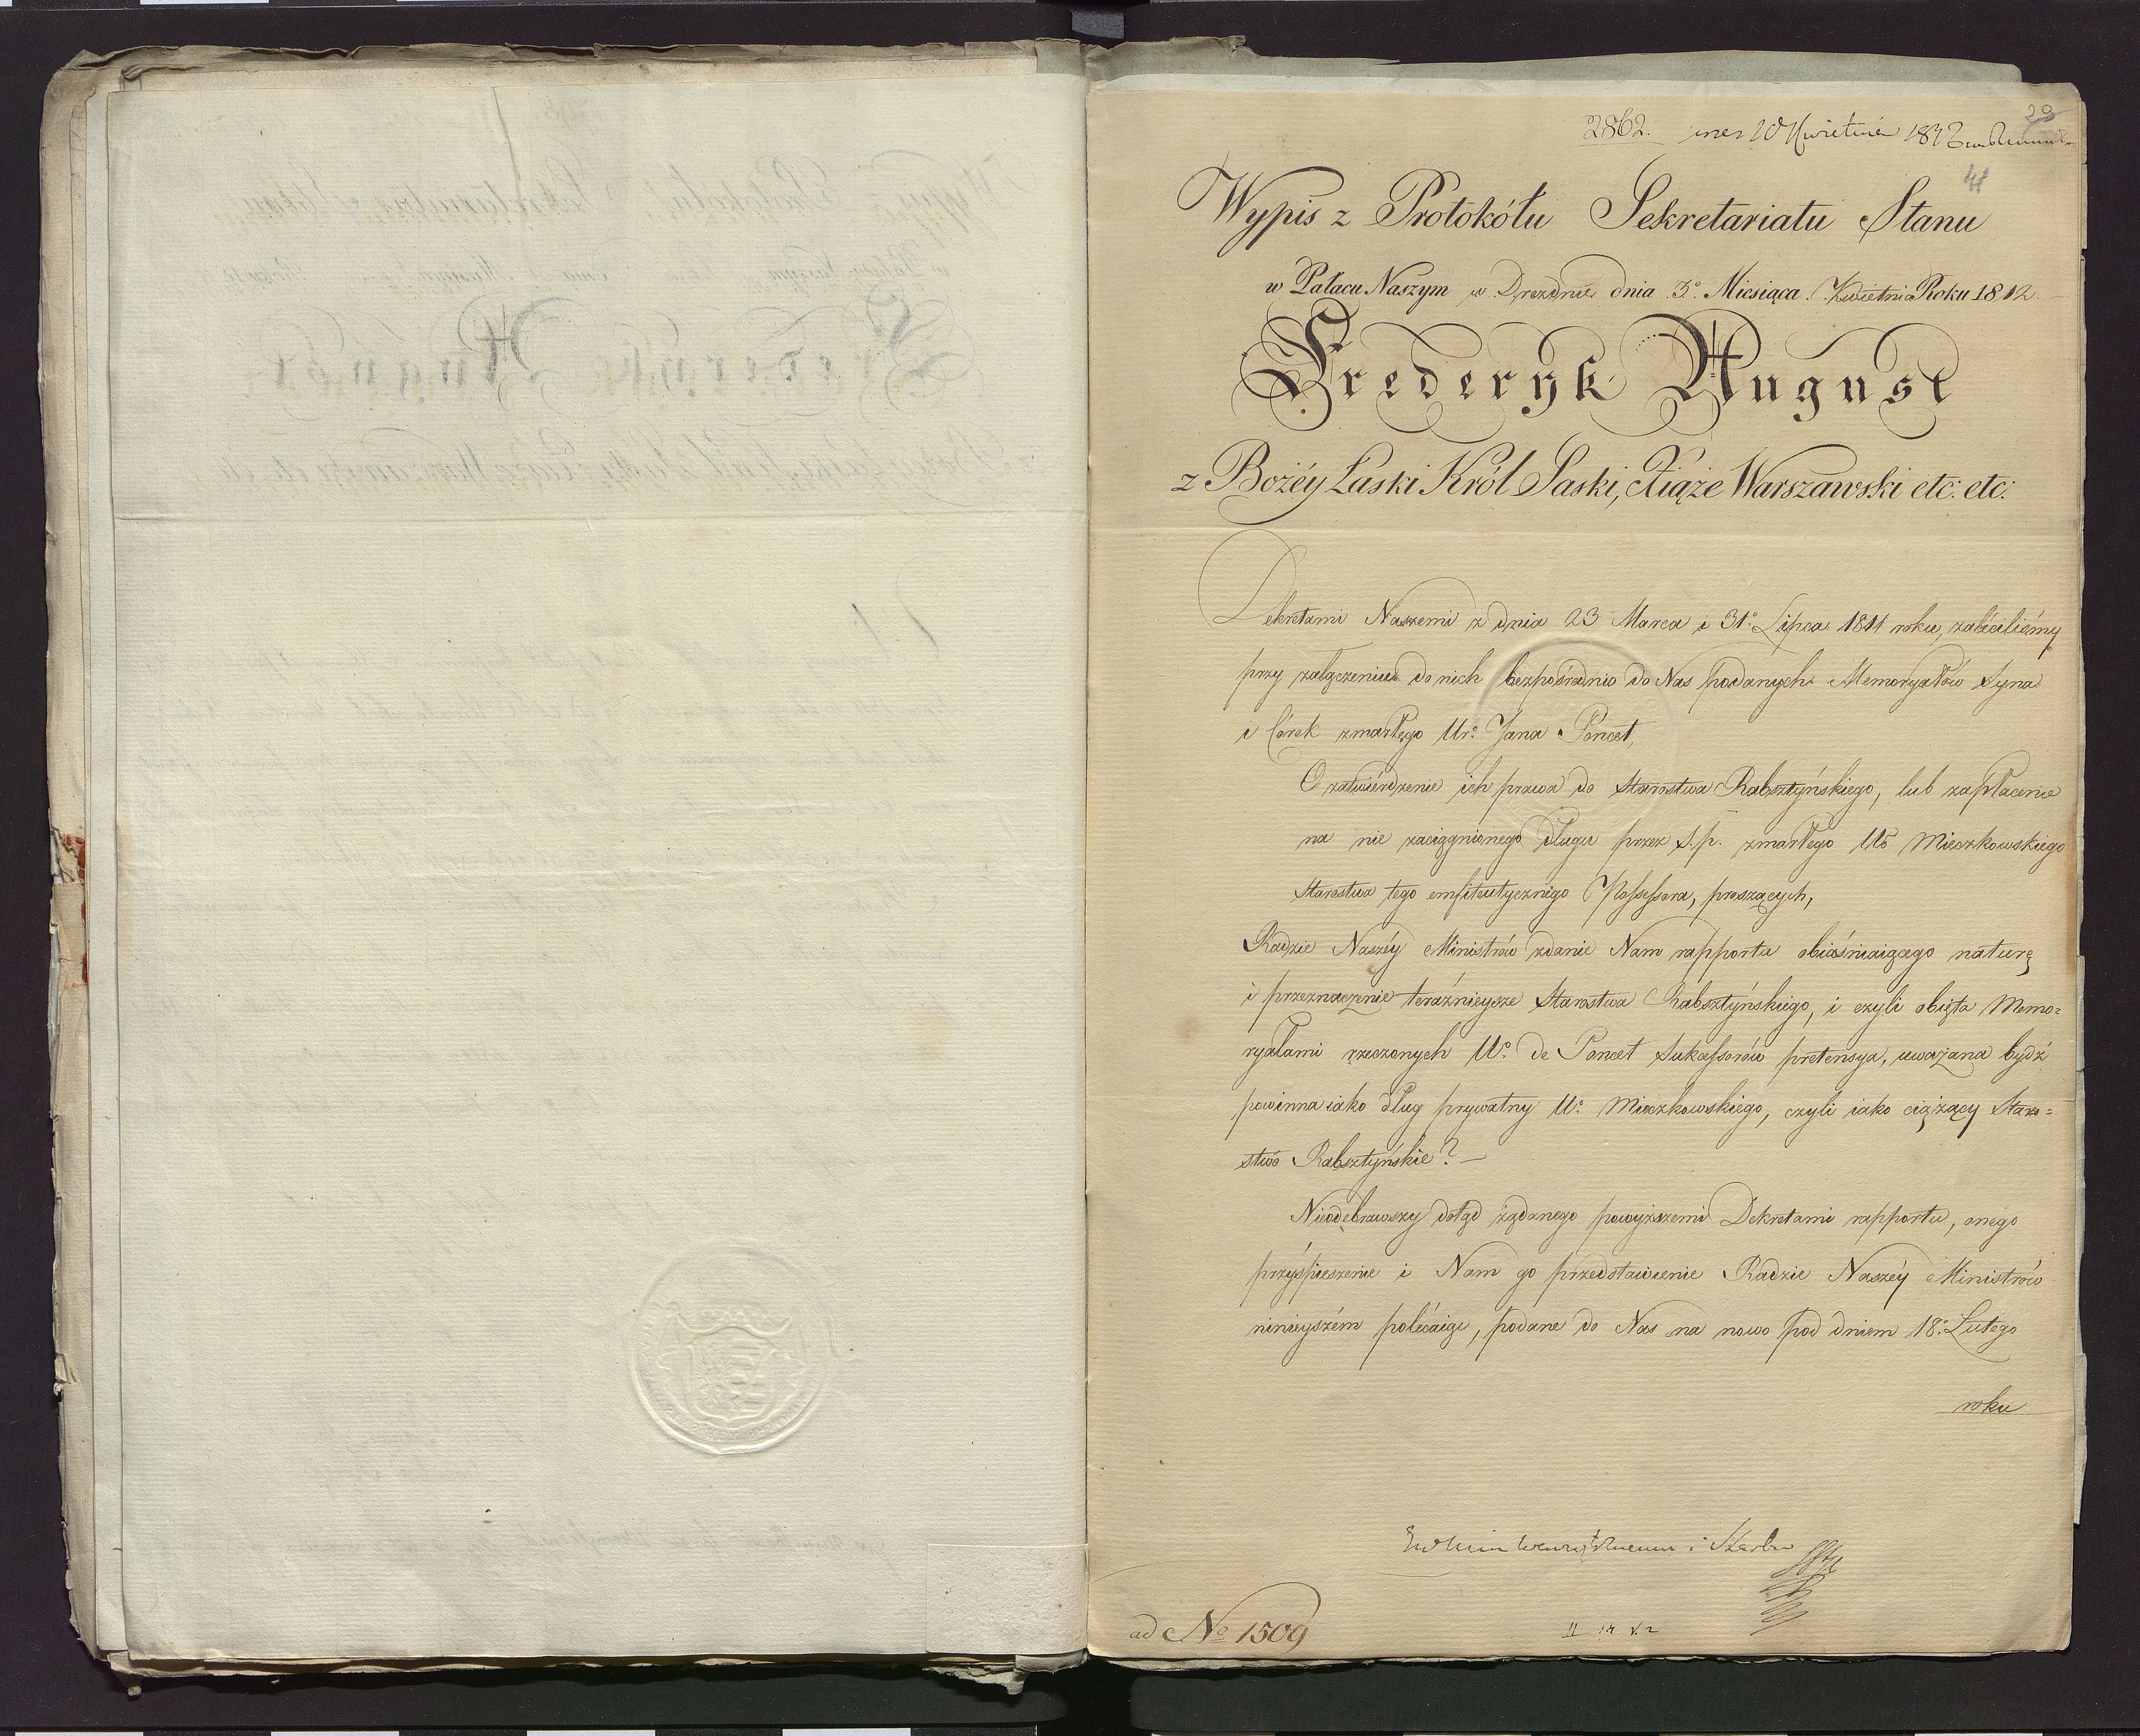 29
2862. 10 Kwietnia 1812
41
Wypis z Protokółu Sekretariatu Stanu
w Pałacu Naszym w Dreznie dnia 3º Miesiąca Kwietnia Roku 1812.
Frederyk August
z Bożéy Łaski Król Saski, Xiąże Warszawski etc: etc:
Dekretami Naszemi z dnia 23 Marca i 31º Lipca 1811 roku, zaléciliśmy
przy załączeniu do nich bezpośrednio do Nas podanych Memoryałów Syna
i Córek zmarłego Urº Jana Poncet,
O zatwiérdzenie ich prawa do Starostwa Rabsztyńskiego, lub zapłacenie
na nie zaciągnionego długu przez S.p. zmarłego Uº Mieczkowskiego
Starostwa tego emfiteutycznégo Possessora, proszących,
Radzie Naszéy Ministrów zdanie Nam rapportu obiaśniaiącego naturę
i przeznaczenie teraźnieysze Starostwa Rabsztyńskiego, i czyli obięta Memo=
ryałami rzeczonych Uº de Poncet Sukcessorów pretensya, uważana bydź
powinna iako dług prywatny Uº Mieczkowskiego, czyli iako ciążący Staro=
stwo Rabsztyńskie? —
Nieodebrawszy dotąd żądanego powyższemi Dekretami rapportu, onego
przyśpieszenie i Nam go przedstawienie Radzie Naszéy Ministrów
ninieyszém polécaiąc, podane do Nas na nowo pod dniem 18º Lutego
roku
i Skarbu
ad Nº 1509